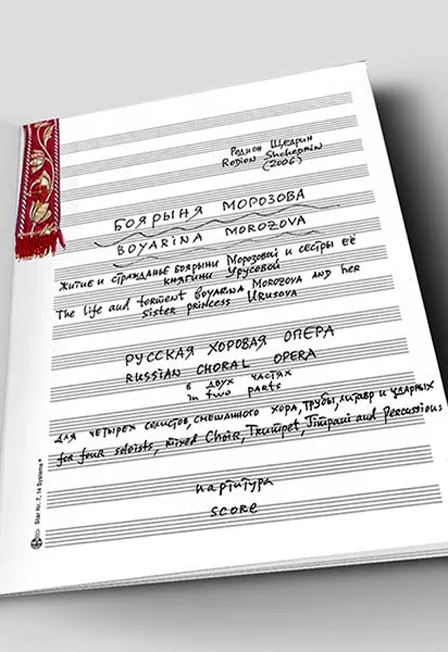 Родион Щедрин
Rodion Shchedrin
(2006)
БОЯРЫНЯ МОРОЗОВА
BOYARINA MOROZOVA
житие и страданье боярыни Морозовой и сестры её
княгини Урусовой
The life and torment BOYARINA MOROZOVA and her
sister princess URUSOVA
РУССКАЯ ХОРОВАЯ ОПЕРА
RUSSIAN CHORAL OPERA
в двух частях
in two parts
для четырех солистов, смешанного хора, трубы, литавр и ударных
for four soloists, mixed Choir, Trumpet, Timpani and percussions
партитура
score
Star Nr. 7, 14 Systeme